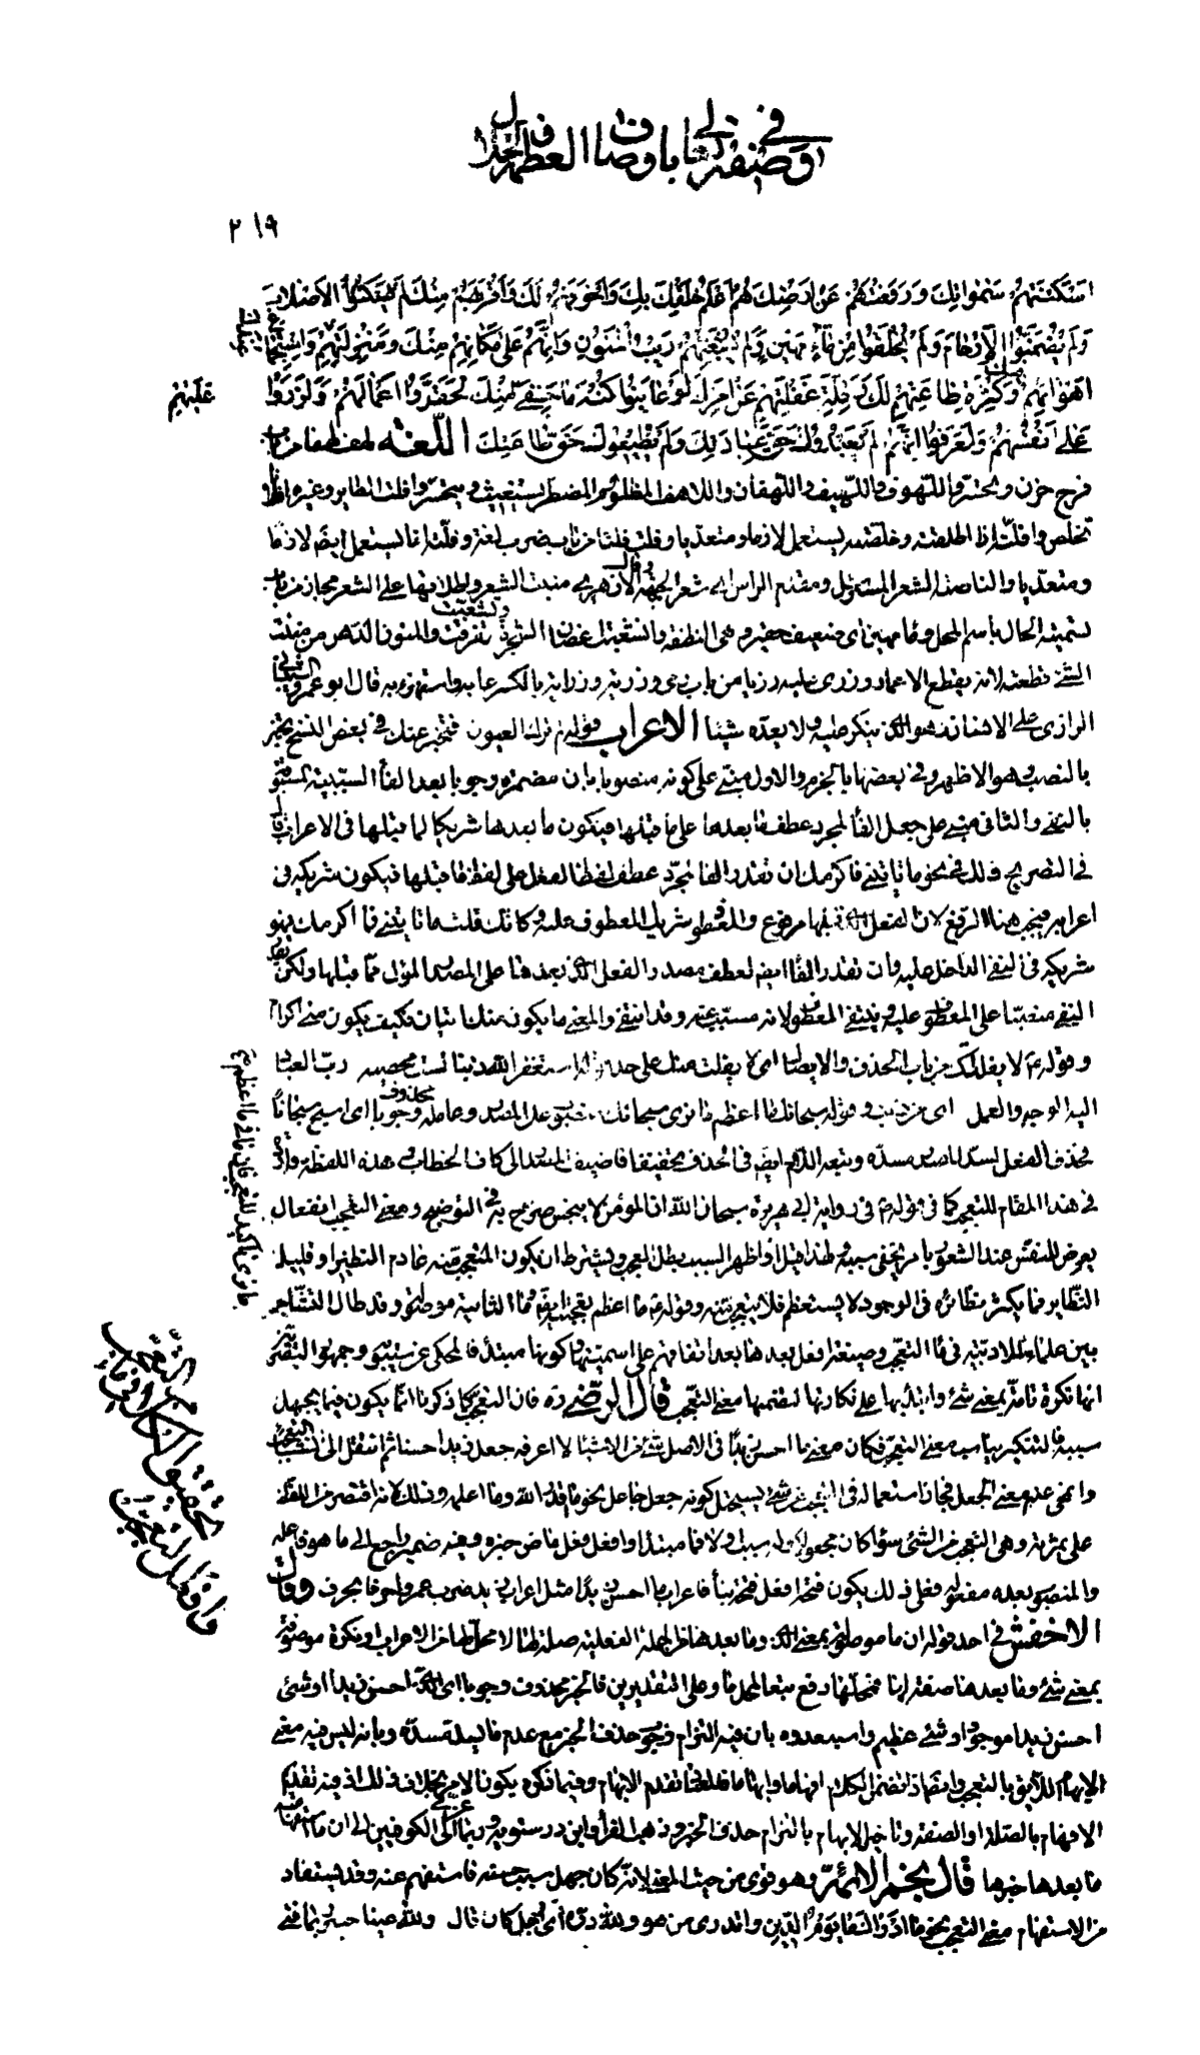 في وصفه تعالى باوصاف العظمة و الجلال
٢١٩
اسكنتهم سمواتك ورفعتهم عن ارضك هم اعلم خلقك بك واخوفهم لك واقربهم منك لم يسكنوا الاصلاب
ولم يضمنوا الارحام ولم يخلقوا من ماء مهين ولم يشعبهم ريب المنون وانهم على مكانهم منك ومنزلتهم عندك واستجماع
اهوائهم فيك وكثرة طاعتهم لك وقلة غفلتهم عن امرك لو عاينوا كنه ما خفي عليهم منك لحقروا اعمالهم ولزروا
عليهم
على انفسهم ولعرفوا انهم لم يعبدوك حق عبادتك ولم يطيعوك حق طاعتك اللغة لهف لهفا من باب
فرح حزن وتحسر والملهوف واللهيف واللهفان واللاهف المظلوم المضطر يستغيث ويتحسر وافلت الطاير وغيره افلاتا
تخلص وافلته اذا اطلقته وخلصته يستعمل لازما ومتعديا وفلت فلتا من باب ضرب لغة وفلته انا يستعمل ايضا لازما
ومتعديا والناصية الشعر المسترسل في مقدم الراس اي شعر الجبهة وقال الازهري منبت الشعر واطلاقها على الشعر مجاز من باب
تسمية الحال باسم المحل وماء مهين اى ضعيف حقير وهى النطفة وانشعبت اغصان الشجرة وتشعبت تفرقت والمنون الدهر من مننت
الشئ قطعته لانه يقطع الاعمار وزرى عليه زريا من باب رمى وزرية وزراية بالكسر عابه واستهزء به قال ابو عمرو الشيباني
الزارى على الانسان هو الذي ينكر عليه ولا يعده شيئا الاعراب قوله لم ترك العيون فتخبر عنك في بعض النسخ بتخبر
بالنصب وهو الاظهر وفي بعضها بالجزم والاول مبنى على كونه منصوبا بان مضمرة وجوبا بعد الفأ السببية المسبوقة
بالنفي والثانى مبنى على جعل الفأ لمجرد عطف ما بعدها على ما قبلها فيكون ما بعدها شريكا لما قبلها فى الاعراب قال
في التصريح وذلك في نحو ما تاتيني فاكرمك ان تقدر الفأ لمجرد عطف لفظ الفعل على لفظ ما قبلها فيكون شريكه في
اعرابه فيجب هنا الرفع لان الفعل الذي قبلها مرفوع والمعطوف شريك المعطوف عليه وكانك قلت ما تاتيني فما اكرمك فهو
شريكه في النفي الداخل عليه وان تقدر الفأ ايضا لعطف مصدر الفعل الذي بعدها على المصدر المؤول مما قبلها ولكن يقدر
النفي منصبا على المعطوف عليه وينتفى المعطوف لانه مسبب عنه وقد انتفى والمعنى ما يكون منك اتيان فكيف يكون منى اكرام
وقوله لا يفلتك من باب الحذف والايصال اى لا يفلت منك على حد قوله استغفر الله ذنبا لست محصيه رب العباد
اليه الوجه والعمل اى من ذنب وقوله سبحانك ما اعظم ما نرى سبحانك منصوب على المصدر وعامله محذوف وجوبا اى اسبح سبحانا
بحذف الفعل لسد المصدر مسده وتبعه اللام ايضا في الحذف تخفيفا فاضيف المصدر الى كاف الخطاب وهذه اللفظة واردة
في هذا المقام للتعجب كما في قوله في رواية ابي هريرة سبحان الله ان المؤمن لا ينجس صرح به في التوضيح ومعنى التعجب انفعال
يعرض للنفس عند الشعور بامر يخفى سببه ولهذا قيل اذا ظهر السبب بطل العجب ويشترط ان يكون المتعجب منه عادم النظير او قليل
النظاير فما يكثر نظائره فى الوجود لا يستعظم فلا يتعجب منه وقوله ما اعظم تعجب ايضا فما الثانية موصولة وقد طال التشاجر
بين علماء الادبية في ما التعجب وصيغة افعل بعدها بعد اتفاقهم على اسميتها وكونها مبتدأ فالمحكى عن سيبويه وجمهور البصريين
انها نكرة تامة بمعنى شئ وابتدء بها على نكارتها لتضمنها معنى التعجب قال الرضي ره فان التعجب كما ذكرنا انما يكون فيما يجهل
سببه فالتنكير يناسب معنى التعجب فكان معنى ما احسن زيدا في الاصل شئ من الاشياء لا اعرفه جعل زيدا حسنا ثم انتقل الى انشاء التعجب
وانمحى عنه معنى الجعل فجاز استعماله في التعجب عن شئ يستحيل كونه بجعل جاعل نحو ما اقدر الله وما اعلمه وذلك لانه اقتصر من اللفظ
على ثمرته وهى التعجب من الشئ سواء كان مجعولا وله سبب او لا فما مبتدأ وافعل فعل ماض خبره وفيه ضمير راجع الى ما هو فاعله
والمنصوب بعده مفعوله فعلى ذلك يكون فتحة افعل فتحة بناء فاعراب ما احسن زيدا مثل اعراب زيد ضرب عمرا حرفا بحرف وقال
الاخفش في احد قوليه ان ما موصولة بمعنى الذي وما بعدها من الجملة الفعلية صلة لها لا محل لها من الاعراب او نكرة موصوفة
بمعنى شئ وما بعدها صفة لها فمحلها رفع تبعا لمحل ما وعلى التقديرين فالخبر محذوف وجوبا اى الذي احسن زيدا او شئ
احسن زيدا موجود او شئ عظيم واستبعدوه بان فيه التزام وجوب حذف الخبر مع عدم ما يسد مسده وبانه ليس فيه معنى
الابهام اللايق بالتعجب وايضا اذ تضمن الكلام افهاما وابهاما فالمعتاد تقديم الابهام وفيما ذكره يكون الامر بخلاف ذلك اذ فيه تقديم
الافهام بالصلة او الصفة وتاخير الابهام بالتزام حذف الخبر وذهب الفرأ وابن درستويه وربما عزى الى الكوفيين الى ان ما استفهامية
ما بعدها خبرها قال نجم الائمة وهو قوى من حيث المعنى لانه كان جهل سبب حسنه فاستفهم عنه وقد يستفاد
من الاستفهام معنى التعجب نحو ما ادريك ما يوم الدين واتدرى من هو ولله دره اى رجل كان قال ولله عينا حبتر ايما فتى
ما نرى تاكيد للتعجب فان ما في ما اعظم
تحقيق الكلام في ما التعجب وافعال التعجب